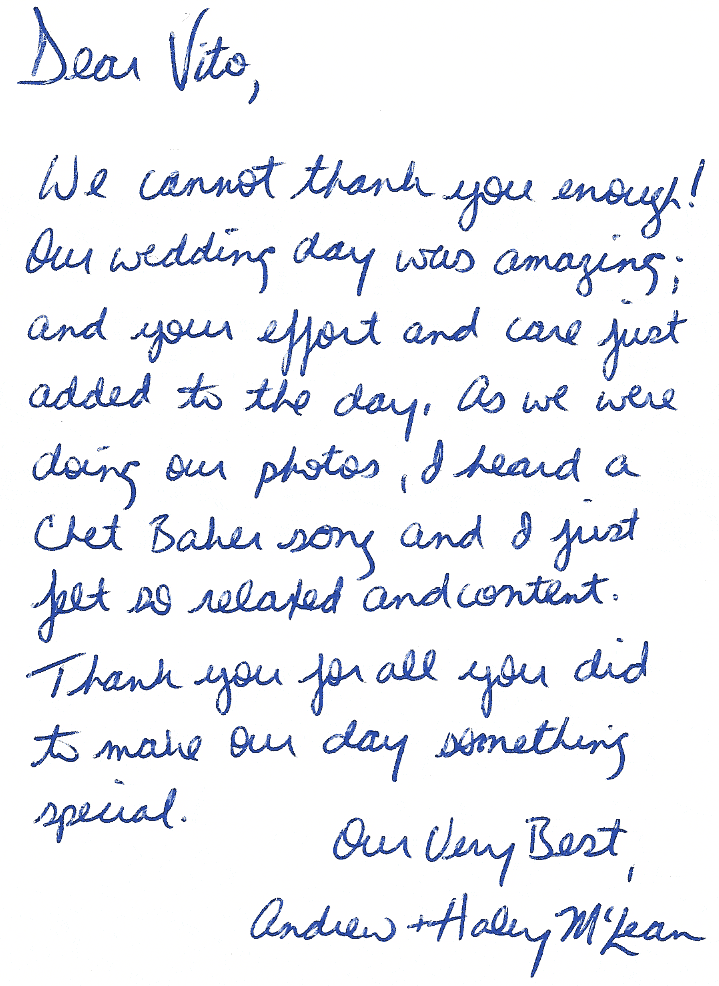 Dear Vito,
We cannot thank you enough!
Our wedding day was amazing;
and your effort and care just
added to the day. As we were
doing our photos, I heard a
Chet Baker song and I just
felt so relaxed and content.
Thank you for all you did
to make our day something
special.
Our Very Best,
Andrew + Haley McLean